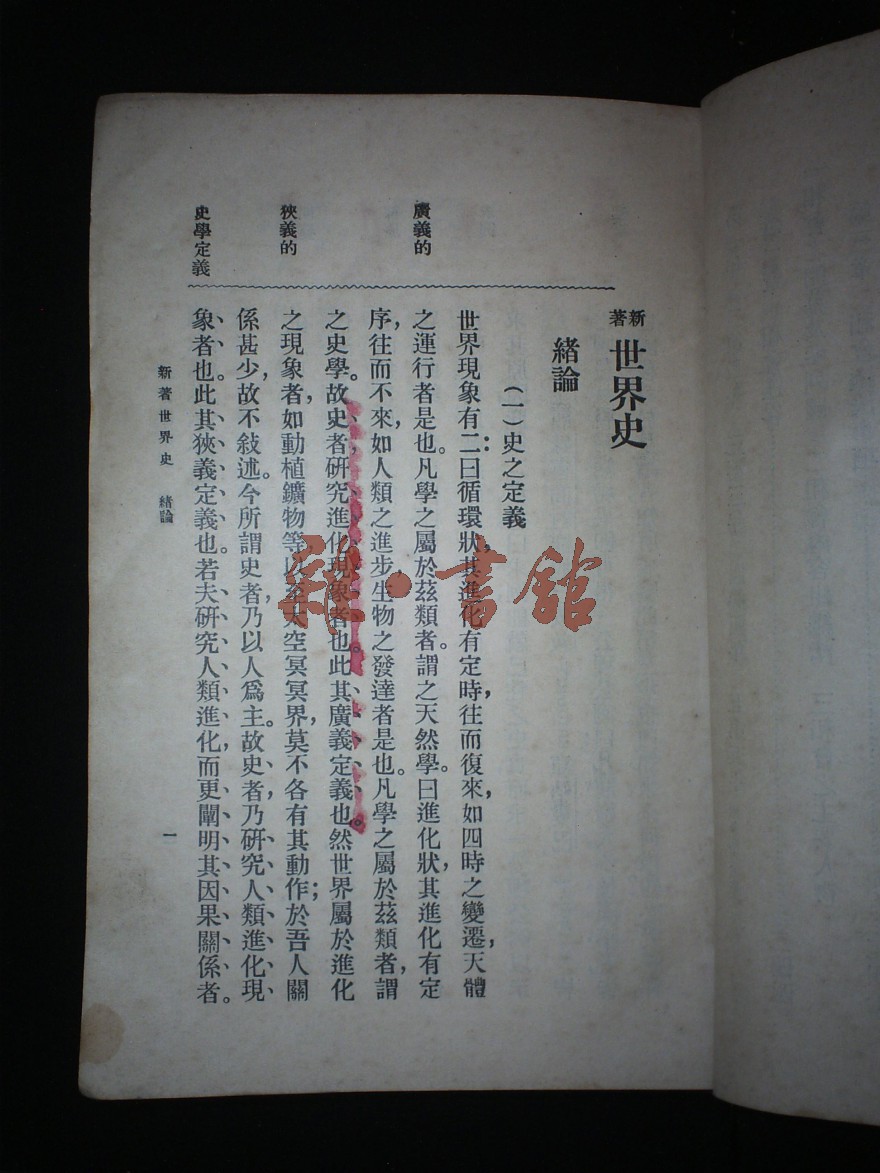 新著 世界史
緒論
（一）史之定義
世界現象有二：曰循環狀，其進化有定時，往而復來，如四時之變遷，天體
之運行者是也。凡學之屬於茲類者。謂之天然學。曰進化狀，其進化有定
序，往而不來，如人類之進步，生物之發達者是也。凡學之屬於茲類者，謂
之史學。故史者，研究進化現象者也。此其廣義定義也。然世界屬於進化
之現象者，如動植鑛物等，以至太空冥冥界，莫不各有其動作；於吾人關
係甚少，故不敍述。今所謂史者，乃以人爲主。故史者，乃研究人類進化現
象者也。此其狹義定義也。若夫研究人類進化，而更闡明其因果關係者。
廣義的
狹義的
史學定義
新著世界史 緒論
一
雜·書館